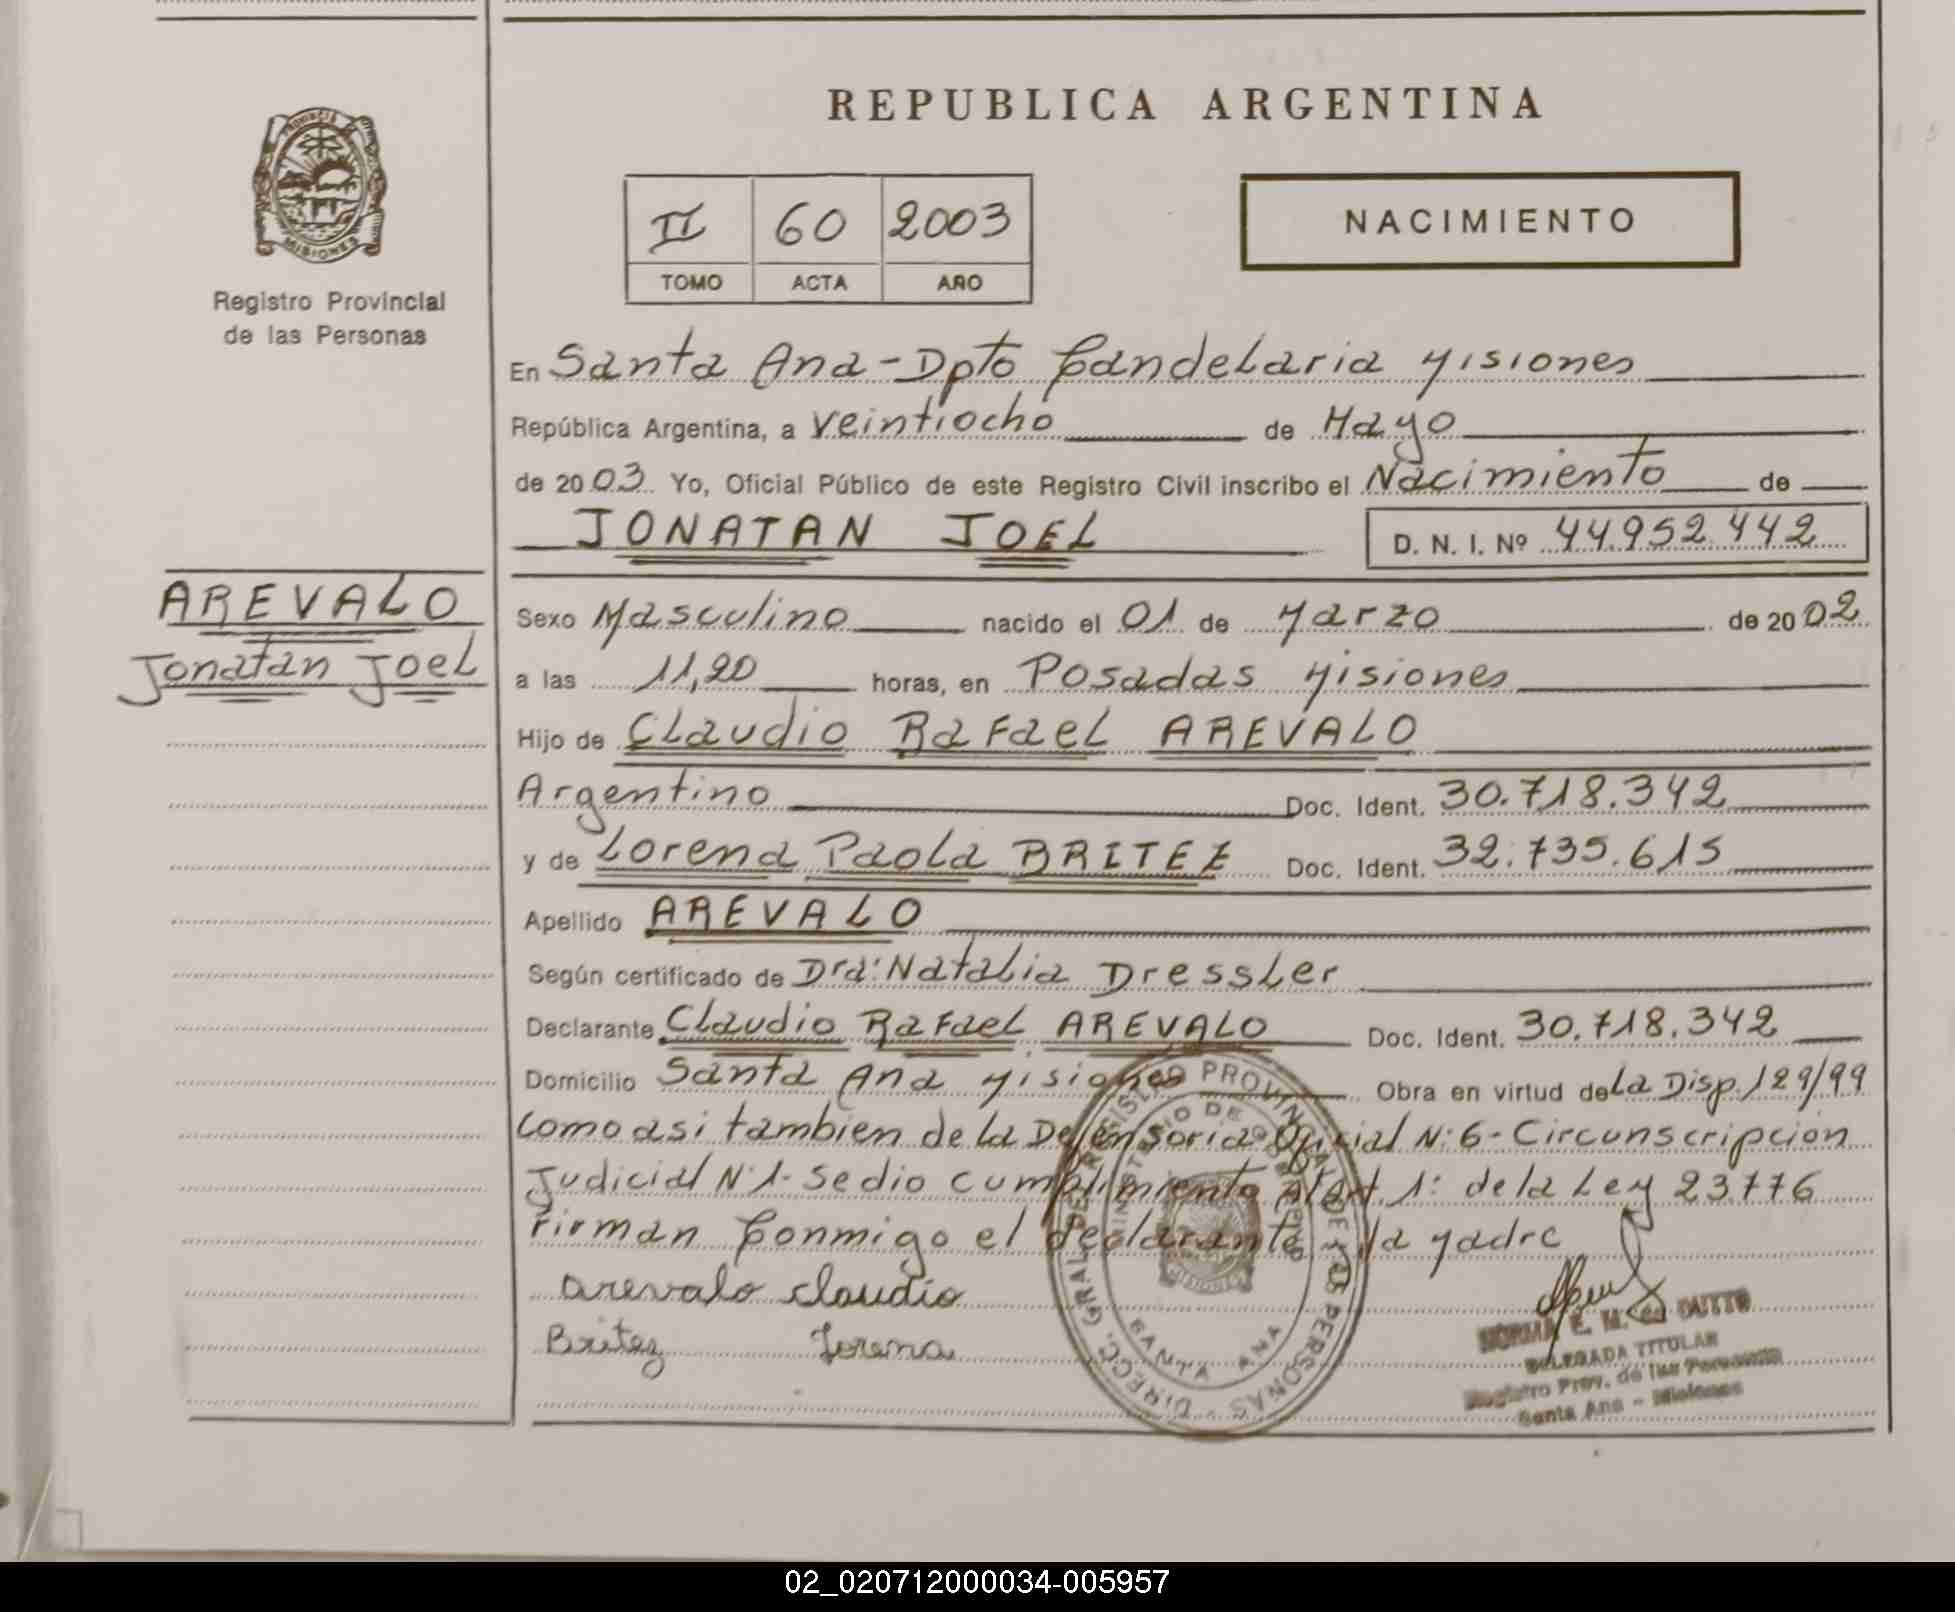 REPUBLICA ARGENTINA
PROVINCIA DE
MISIONES
Registro Provincial
de las Personas
II 60 2003
TOMO ACTA AÑO
NACIMIENTO
En Santa Ana-Dpto Candelaria Misiones
República Argentina, a veintiocho de Mayo
de 2003 Yo, Oficial Público de este Registro Civil inscribo el Nacimiento de
JONATAN JOEL D. N. I. Nº 44.952.442
AREVALO
Jonatan Joel
Sexo Masculino nacido el 01 de Marzo de 2002
a las 11,20 horas, en Posadas Misiones
Hijo de Claudio Rafael AREVALO
Argentino Doc. Ident. 30.718.342
y de Lorena Paola BRITEZ Doc. Ident. 32.735.615
Apellido AREVALO
Según certificado de Dra: Natalia Dressler
Declarante Claudio Rafael AREVALO Doc. Ident. 30.718.342
Domicilio Santa Ana Misiones Obra en virtud de La Disp. 129/99
Como asi tambien de la Defensoria Oficial N: 6- Circunscripcion
Judicial N: 1- se dio cumplimiento al art. 1: de la Ley 23.776
Firman Conmigo el declarante y la Madre
Arevalo Claudio
Britez Lorena
DIRECC. GRAL. DEL REGISTRO PROVINCIAL DE LAS PERSONAS
MINISTERIO DE GOBIERNO
SANTA ANA
NORMA E. M. de DUTTO
DELEGADA TITULAR
Registro Prov. de las Personas
Santa Ana - Misiones
02_020712000034-005957